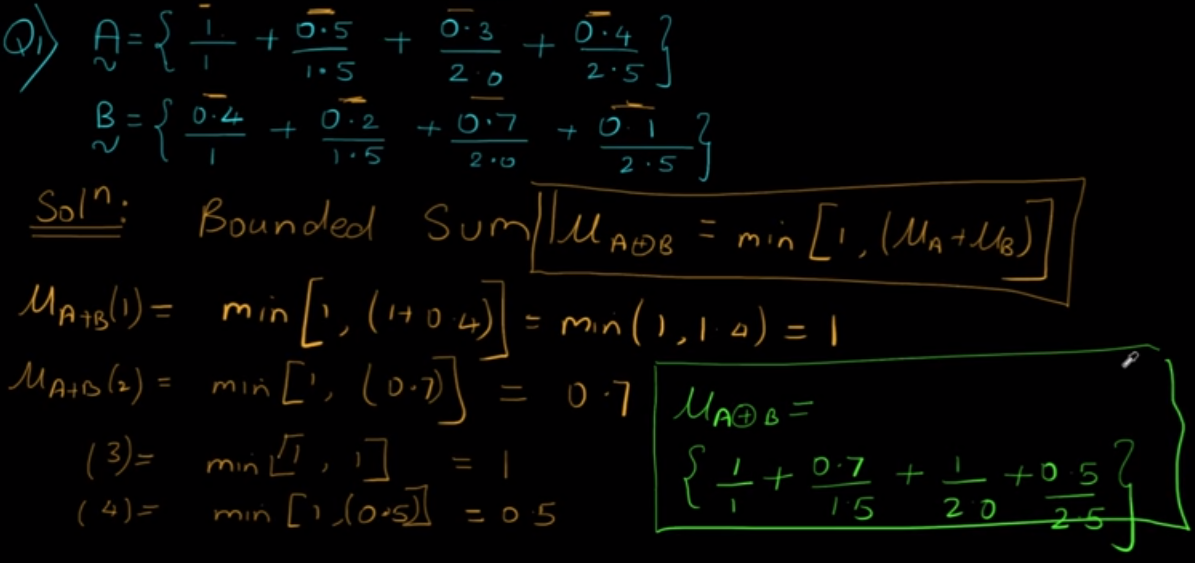 Q1) A = { 1/1 + 0.5/1.5 + 0.3/2.0 + 0.4/2.5 }
B = { 0.4/1 + 0.2/1.5 + 0.7/2.0 + 0.1/2.5 }
Solⁿ: Bounded Sum | μ A⊕B = min [1, (μA + μB)]
μA+B(1) = min [1, (1+0.4)] = min(1, 1.4) = 1
μA+B(2) = min [1, (0.7)] = 0.7
(3) = min [1, 1] = 1
(4) = min [1, (0.5)] = 0.5
μA⊕B =
{ 1/1 + 0.7/1.5 + 1/2.0 + 0.5/2.5 }